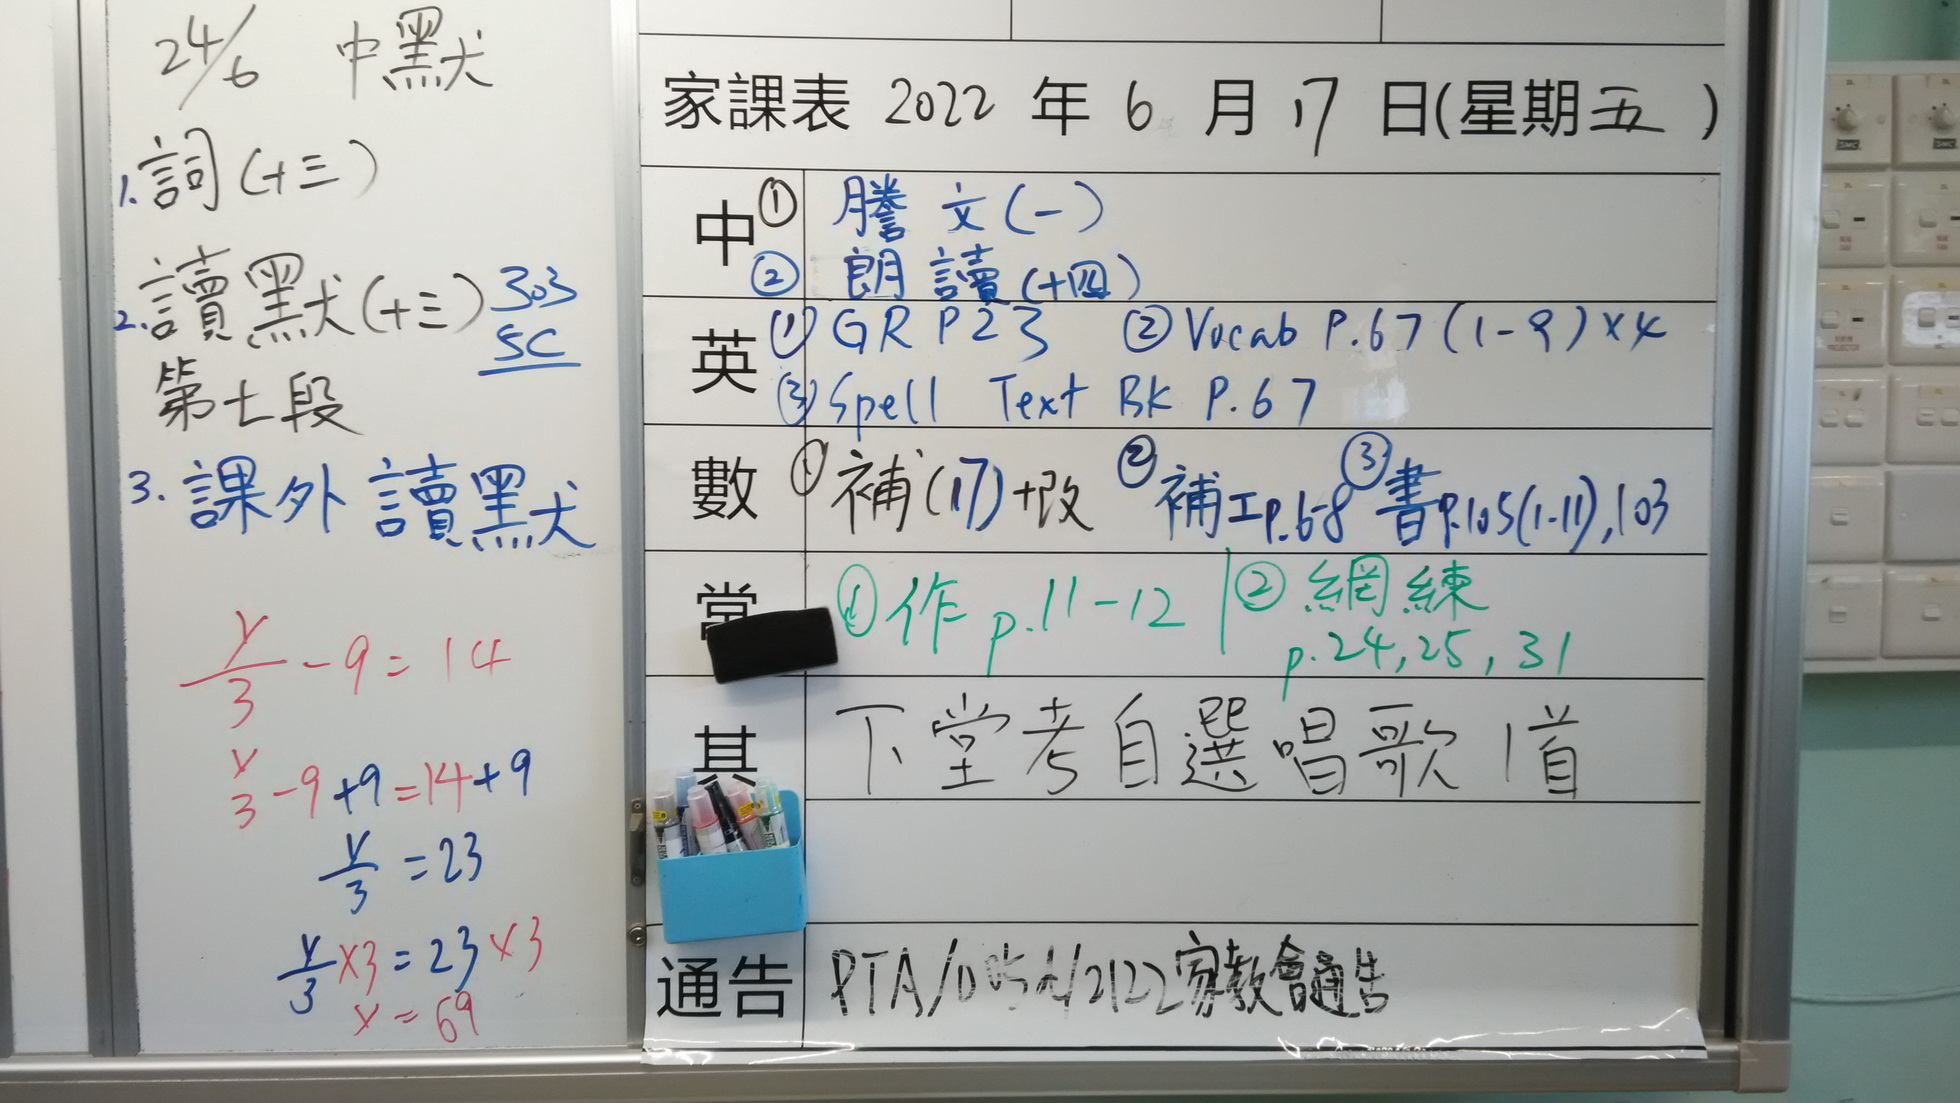 24/6 中默
1. 詞(十三)
2. 讀默(十三)
303
5C
第七段
3. 課外讀默
y/3 - 9 = 14
y/3 - 9 + 9 = 14 + 9
y/3 = 23
y/3 × 3 = 23 × 3
y = 69
家課表 2022 年 6 月 17 日(星期五)
中 ① 謄文(一)
② 朗讀(十四)
英 ① GR P23 ② Vocab P.67 (1-9) ×4
③ Spell Text BK P.67
數 ① 補(17)+改 ② 補工p.6-8 ③ 書p.105(1-11),103
常 ① 作 p.11-12 ② 網練
p.24,25,31
其 下堂考自選唱歌1首
通告 家教會通告